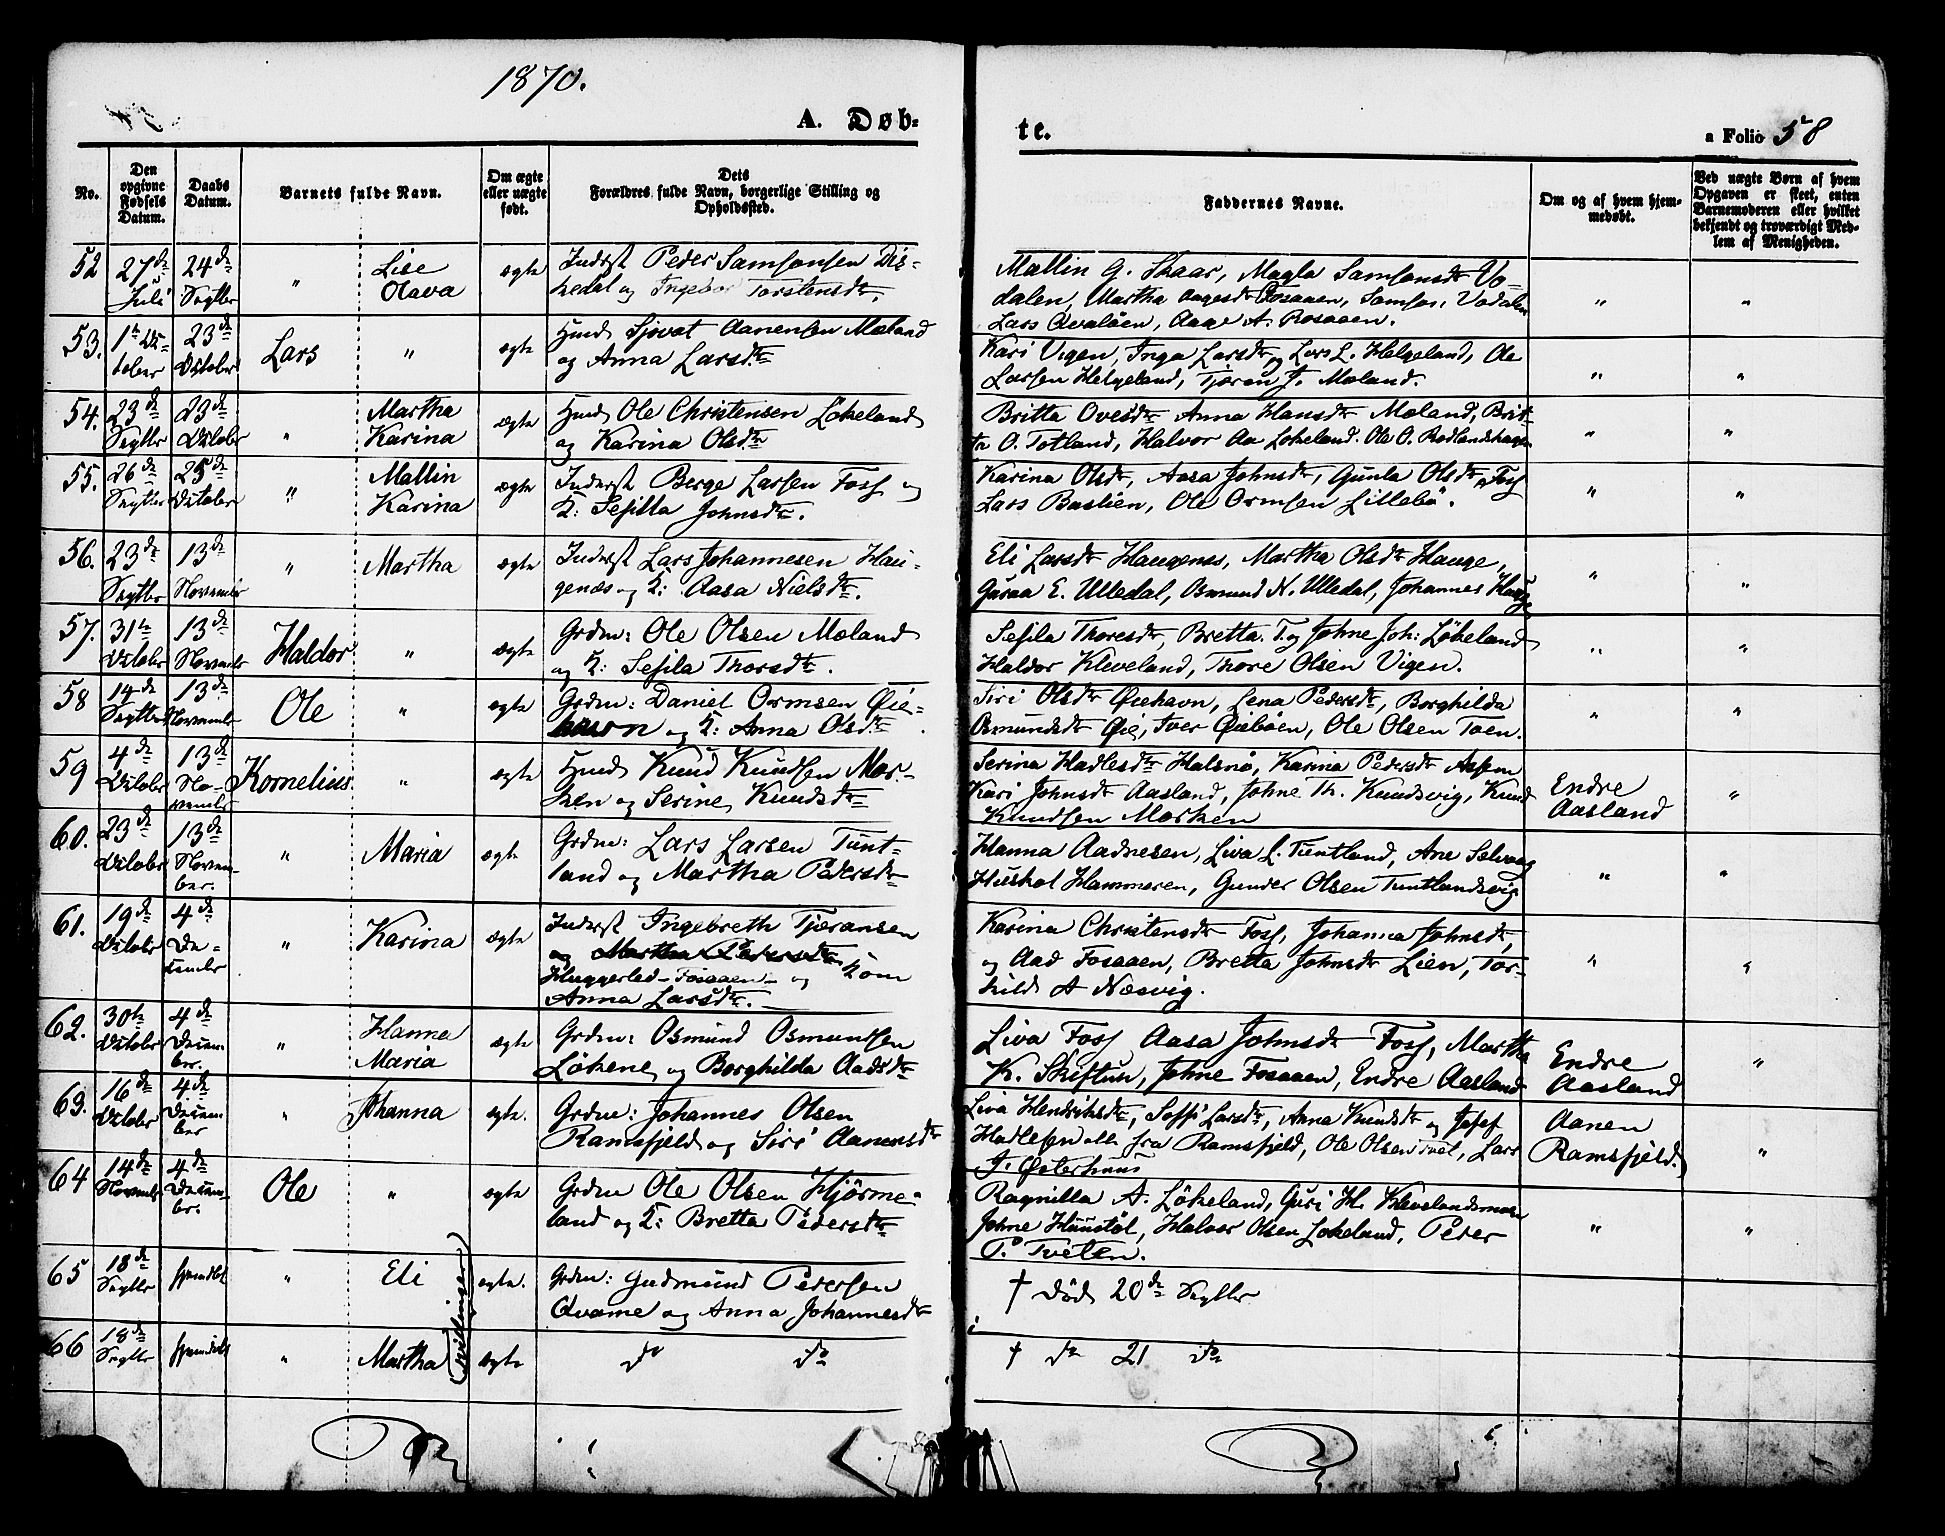 1870.
A. Døb=
te.
a Folio 58
No.
Den opgivne Fødsels Datum.
Daabs Datum.
Barnets fulde Navn.
Om ægte eller uægte født.
Dets Forældres fulde Navn, borgerlige Stilling og Opholdssted.
Faddernes Navne.
Om og af hvem hjem-medøbt.
Ved uægte Børn af hvem Opgaven er skeet, enten Barnemoderen eller hvilket bekjendt og troværdigt Med-lem af Menigheden.
52 27de Juli 24de Septbr " Lise Olava ægte Inderst Peder Samsonsen Dis-
kedal og Ingebor Torstensdtr.
Mallin G. Skaar, Magla Samsonsdtr Vo-
dalen, Martha Aagesdtr Fosaaen, Samson Vodalen
Lars Qvaløen, Aage A. Rosaaen.
" "
53. 1te October 23de October Lars " ægte Hmd Sjovat Aanensen Mæland
og Anna Larsdtr
Kari Vigen, Inga Larsdtr og Lars L. Helgeland, Ole
Larsen Helgeland, Tjæran J. Mæland.
" "
54. 23de Septbr 23de Octobr " Martha Karina ægte Hmd Ole Christensen Løkeland
og Karina Olsdtr
Britta Ovesdtr Anna Hansdtr Mæland, Brit-
ta O. Totland, Halvor Aa Løkeland. Ole O. Rødlandshagen
" "
55. 26de Septbr 25de Octobr " Mallin Karina ægte Inderst Berge Larsen Foss og
K: Sesilla Johnsdtr.
Karina Olsdtr, Aasa Johnsdtr, Gunla Olsdtr, Foss
Lars Bastien, Ole Ormsen Lillebø.
" "
56. 23de Septbr 13de Novembr " Martha ægte Inderst Lars Johannesen Hau-
genæs og K: Aasa Nielsdtr.
Eli Larsdtr Haugenæs, Martha Olsdtr Hauge,
Guraa E. Ulledal, Osmund N. Ulledal, Johannes Hauge
" "
57. 31te Octobr 13de Novembr Haldor " ægte Grdm: Ole Olsen Mæland
og K: Sesila Thorsdtr.
Sesila Thoresdtr, Bretta T. og Johne Joh: Løkeland
Haldor Kleveland, Thore Olsen Vigen.
" "
58 14de Septbr 13de Novembr Ole " ægte Grdm: Daniel Ormsen Øie-
havn og K: Anna Olsdtr.
Siri Olsdtr Øiehavn, Lena Pedersdtr, Borghilda
Osmundsdtr Øie, Iver Øiebøen, Ole Olsen Toen.
" "
59 4de Octobr 13de No-vembr Kornelius " ægte Hmd Knud Knudsen Mar-
ken og Serine Knudsdtr
Serina Hadlesdtr Halsnø, Karina Pedersdtr Aspem
Kari Johnsdtr Aasland, Johne Th. Knudsvig, Knud
Knudsen Marken
Endre Aasland
"
60. 23de Octobr 13de Novem-ber. " Maria ægte Grdm: Lars Larsen Tunt-
land og Martha Pedersdtr
Hanna Aadnesen, Liva L. Tuntland, Ane Selvaag
Huskol Hammeren, Gunder Olsen Tuntlandsvig.
" "
61. 19de Octobr 4de De-cembr " Karina ægte Inderst Ingebreth Tjæransen
og Martha Pedersdtr
Huggerled - Fosaaen - og Kone
Anna Larsdtr. -
Karina Christensdtr Foss, Johanna Johnsdtr,
og Aad Fosaaen, Bretta Johnsdtr Lien, Tor-
kild A Næsvig.
" "
62. 30te Octobr 4de Decem-ber. " Hanna Maria ægte Grdm: Osmund Osmundsen
Løkene og Borghilda Aadsdtr
Liva Foss Aasa Johnsdtr Foss, Martha
K. Skiftun, Johne Fosaaen, Endre Aasland
Endre Aasland
"
63. 16de Octobr 4de Decem-ber " Johanna ægte. Grdm: Johannes Olsen
Ramsfjeld og Siri Aanensdtr
Liva Hendriksdtr, Soffi Larsdtr, Anna Knudsdtr og Josef
Hadlesen alle fra Ramsfjeld, Ole Olsen Tvet, Lars
J. Østerhuus
Aanen Ramsfjeld.
"
64 14de Novembr 4de Decem-br. Ole " ægte Grdm Ole Olsen Hjørme-
land og K: Bretta Pedersdtr
Ragnilla A. Løkeland, Guri H. Klevelandsmoen
Johne Hunstøl, Halvor Olsen Løkeland, Peder
P. Tveten.
" "
65 18de Septbr hjemdøbt " Eli ægte. Grdm: Gudmund Pedersen
Qvame og Anna Johannesdtr
† Død 20de Septbr
(Tvillinger)
66 18de Septbr hjemdøbt " Martha ægte do do
† do 21 do